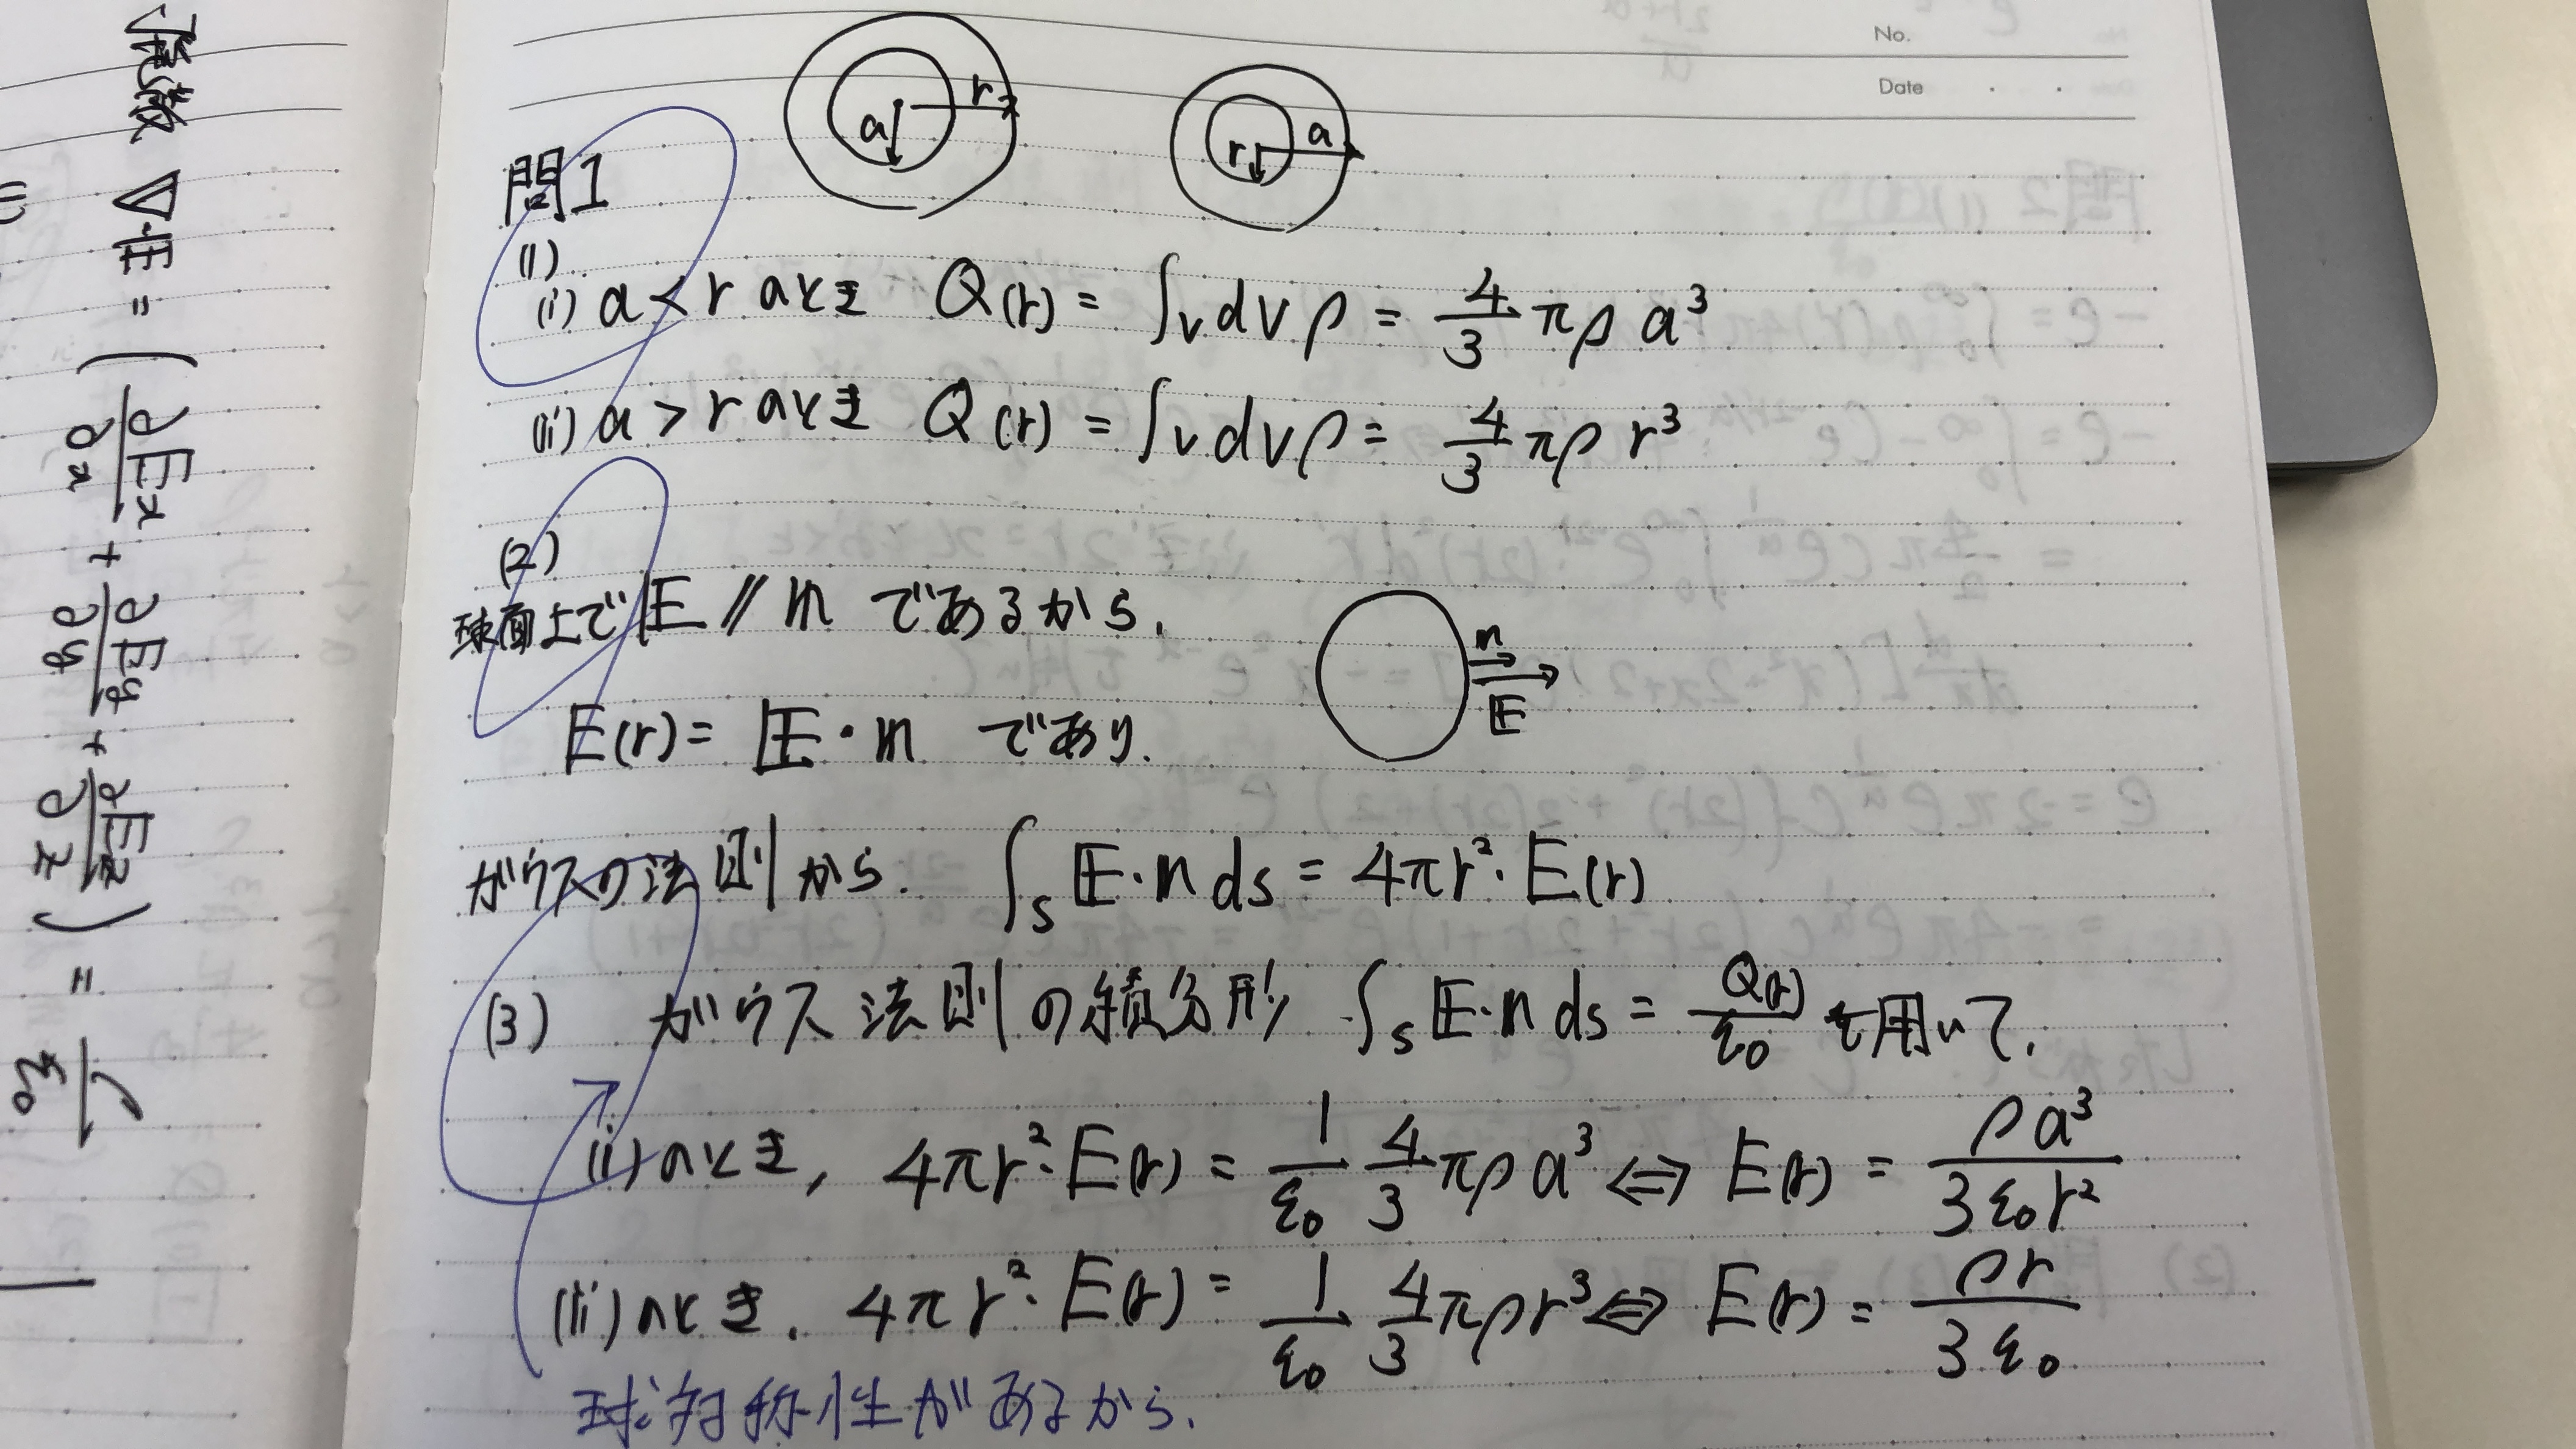 No.
Date
発散 ∇・E = ( ∂Ex/∂x + ∂Ey/∂y + ∂Ez/∂z ) = ρ/ε0
a r
r a
問1
(1)
(i) a < r のとき Q(r) = ∫v dv ρ = 4/3 πρ a³
(ii) a > r のとき Q(r) = ∫v dv ρ = 4/3 πρ r³
(2)
球面上で E // n であるから.
n
E
E(r) = E・n であり.
ガウスの法則から. ∫s E・n ds = 4πr²・E(r)
(3) ガウス法則の積分形 ∫s E・n ds = Q(r)/ε0 を用いて.
(i) のとき, 4πr²・E(r) = 1/ε0 4/3 πρ a³ ⇔ E(r) = ρa³/3ε0r²
(ii) のとき. 4πr²・E(r) = 1/ε0 4/3 πρr³ ⇔ E(r) = ρr/3ε0
球対称性があるから.